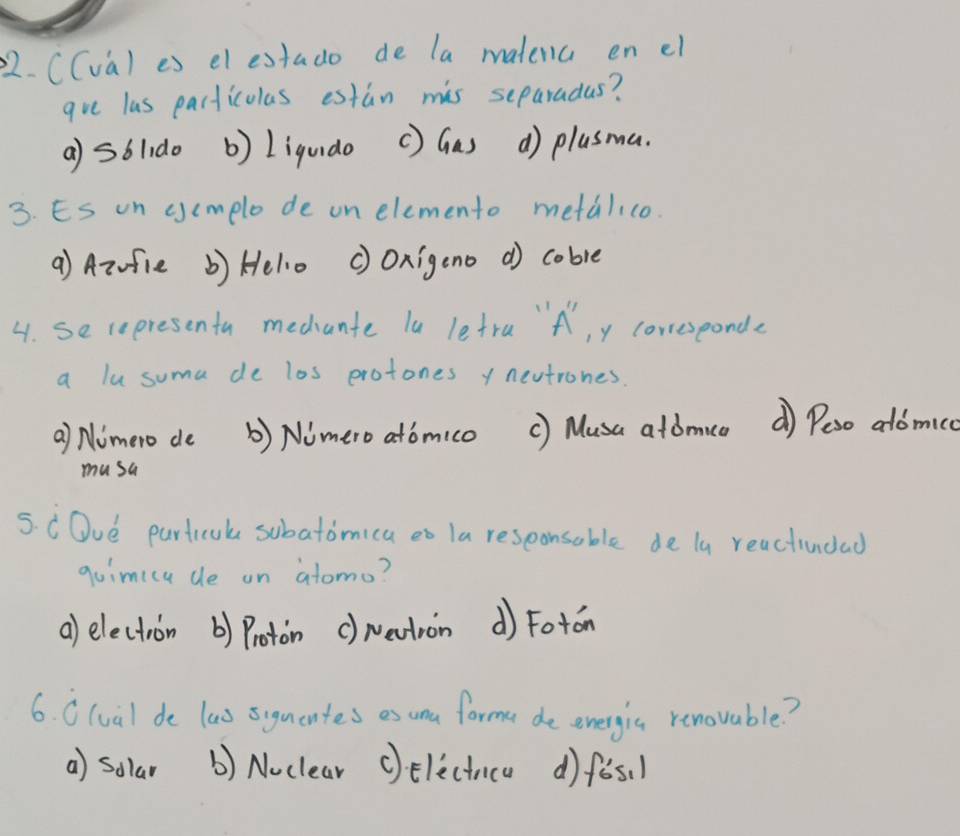 2. ¿Cuál es el estado de la materia en el
que las partículas están más separadas?
a) Sólido b) Líquido c) Gas d) plasma.
3. Es un ejemplo de un elemento metálico.
a) Azufre b) Helio c) Oxígeno d) cobre
4. Se representa mediante la letra "A", y corresponde
a la suma de los protones y neutrones.
a) Número de b) Número atómico c) Masa atómica d) Peso atómico
masa
5. ¿Qué partícula subatómica es la responsable de la reactividad
química de un átomo?
a) electrón b) Protón c) Neutrón d) Fotón
6. ¿Cuál de las siguientes es una forma de energía renovable?
a) Solar b) Nuclear c) Eléctrica d) fósil